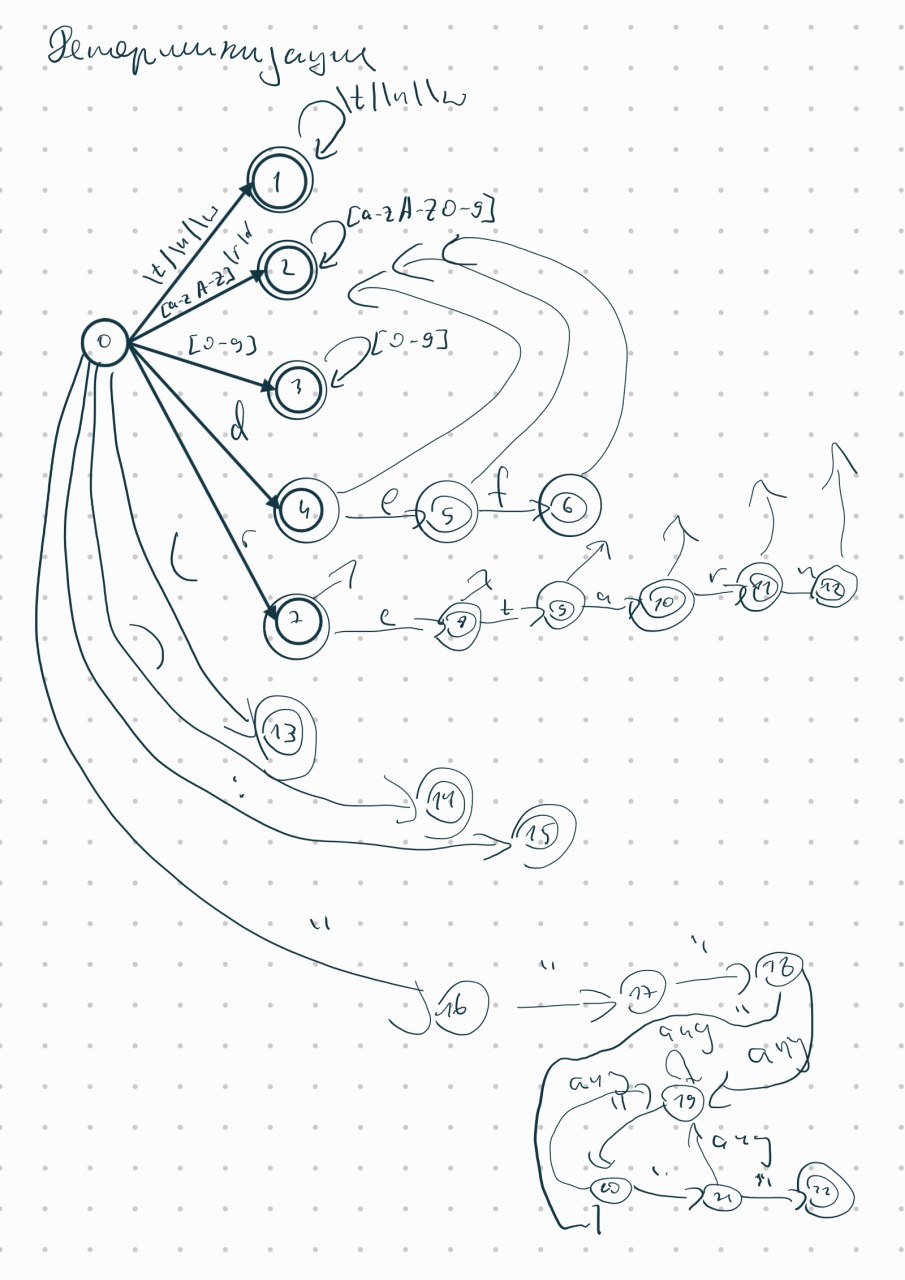 Детерминизация
\t|\n|\w
1
\t|\n|\w
[a-zA-Z0-9]
2
0
[0-9]
3
[0-9]
d
4
e
5
f
6
r
7
e
t
9
a
10
r
11
n
12
(
)
13
:
14
15
"
16
"
17
"
18
"
any
any
any
"
19
any
20
"
21
"
22